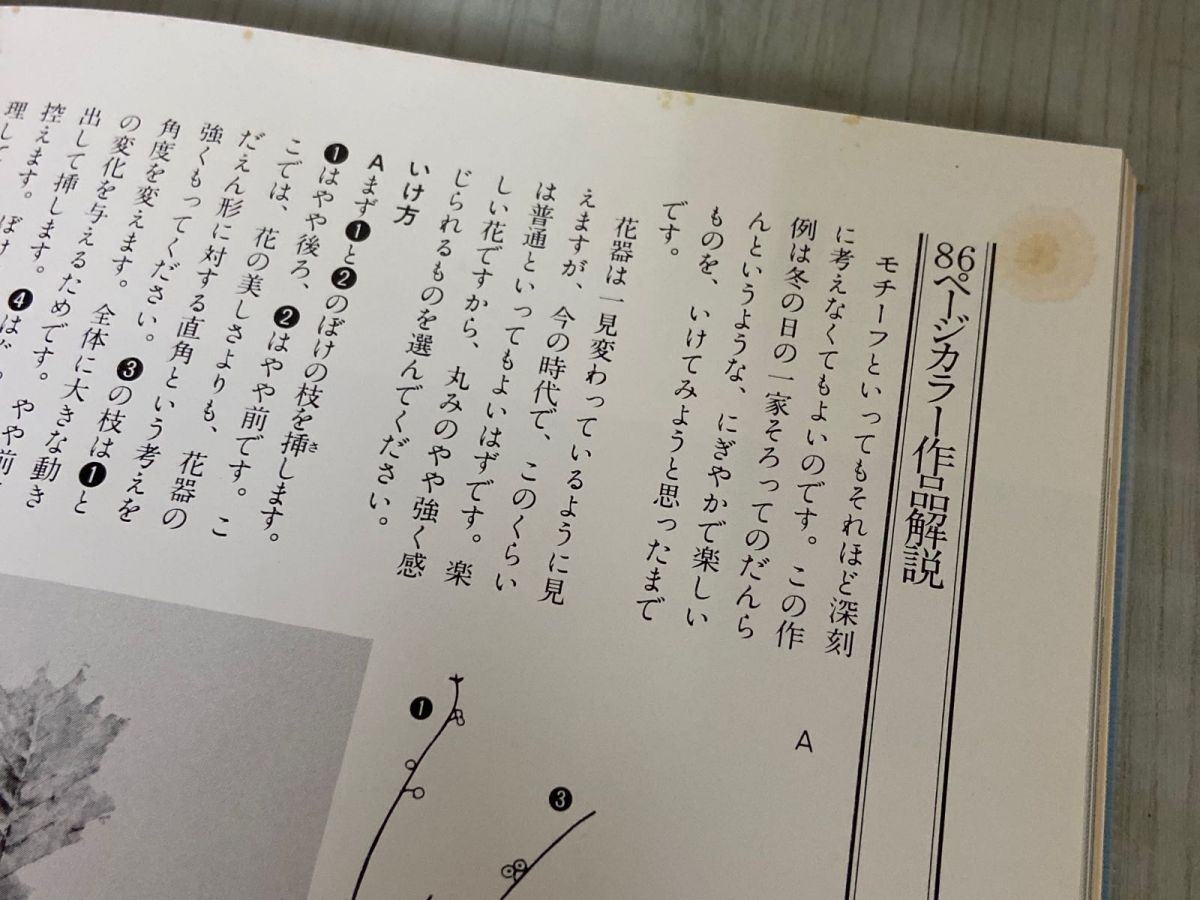 86ページカラー作品解説
モチーフといってもそれほど深刻
に考えなくてもよいのです。この作
例は冬の日の一家そろってのだんら
んというような、にぎやかで楽しい
ものを、いけてみようと思ったまで
です。
花器は一見変わっているように見
えますが、今の時代で、このくらい
は普通といってもよいはずです。楽
しい花ですから、丸みのやや強く感
じられるものを選んでください。
いけ方
Aまず❶と❷のぼけの枝を挿します。
さ
❶はやや後ろ、❷はやや前です。こ
こでは、花の美しさよりも、花器の
だえん形に対する直角という考えを
強くもってください。❸の枝は❶と
角度を変えます。全体に大きな動き
の変化を与えるためです。やや前
出して挿します。❹は
控えます。ぼけ
理して
A
❶
❸